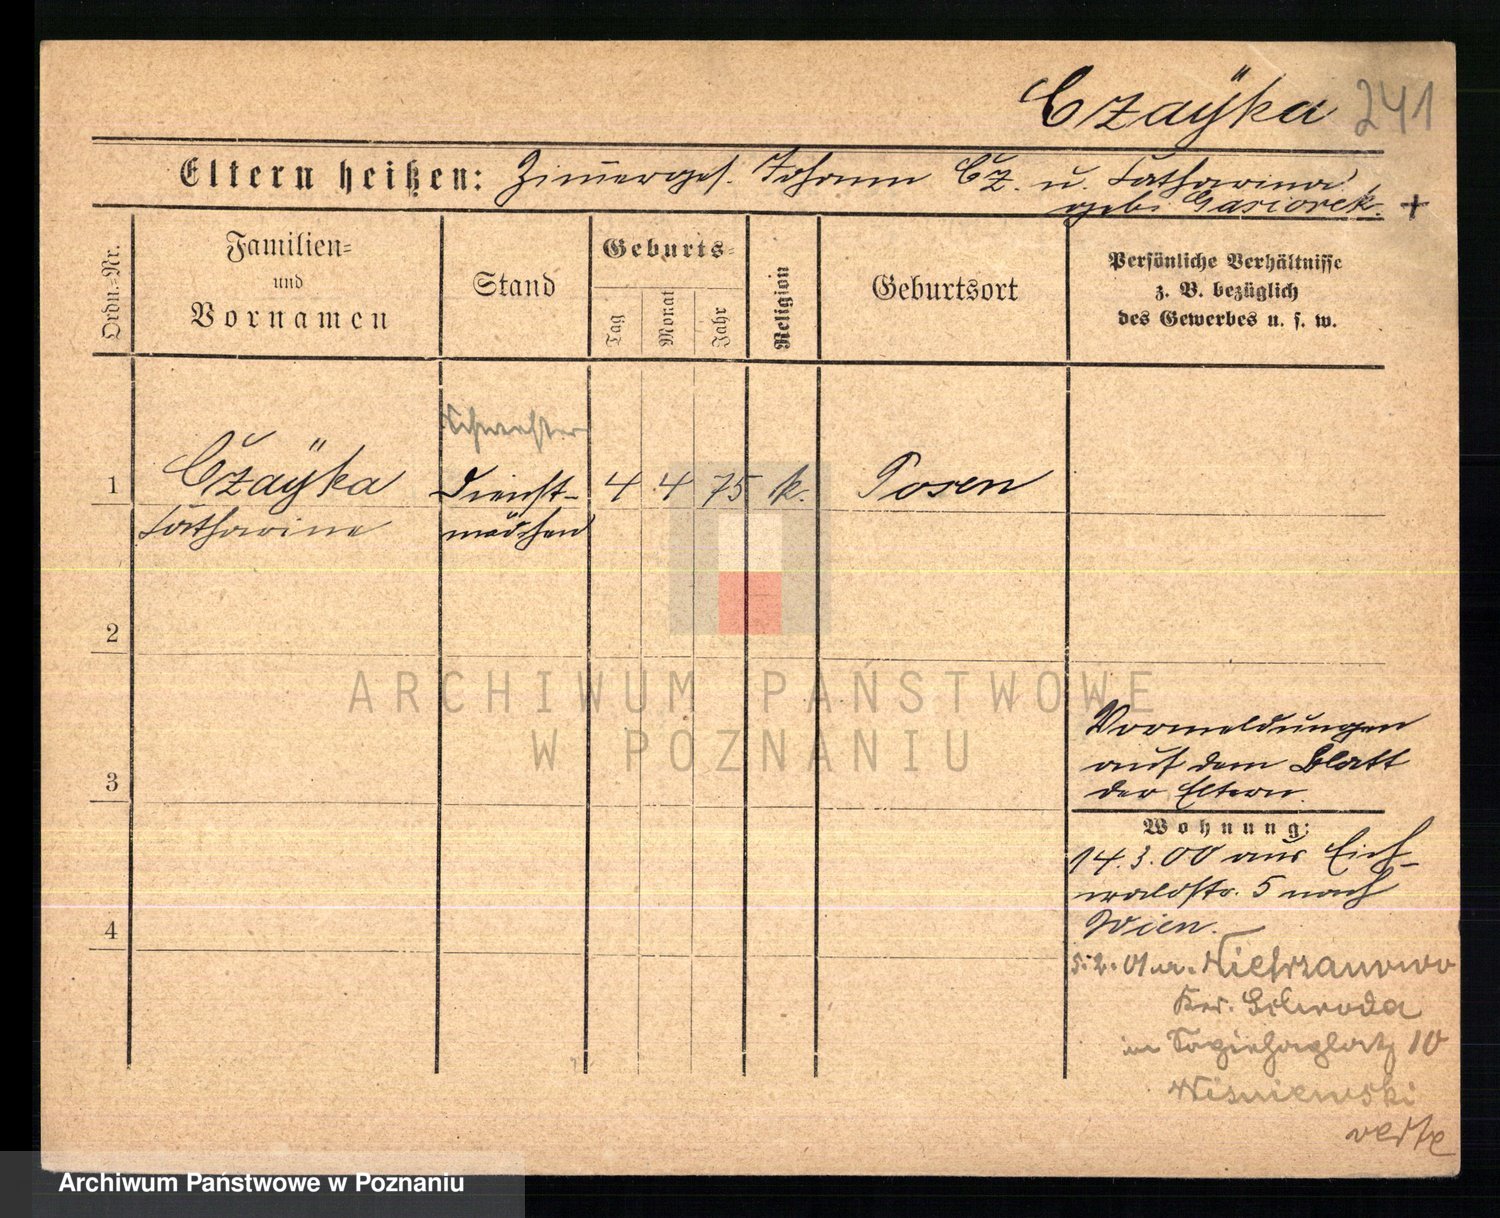 Czaÿka 241
Eltern heißen: Zimmerges. Johann Cz. u. Katharina
geb. Gasiorek. +
Ordn.-Nr.
Familien-
und
Vornamen
Stand
Geburts-
Tag
Monat
Jahr
Religion
Geburtsort
Persönliche Verhältnisse
z. B. bezüglich
des Gewerbes u. s. w.
Schwester
1 Czaÿka Dienst- 4 4 75 k. Posen
Katharina mädchen
2
ARCHIWUM PAŃSTWOWE
W POZNANIU
Vormeldungen
auf dem Blatt
der Eltern.
3
Wohnung:
14.3.00 aus Eich-
waldstr. 5 nach
Wien.
4
5.2.01 a. Nietrzanowo
Kr. Schroda
in Sapiehaplatz 10
Wisniewski
verte
Archiwum Państwowe w Poznaniu